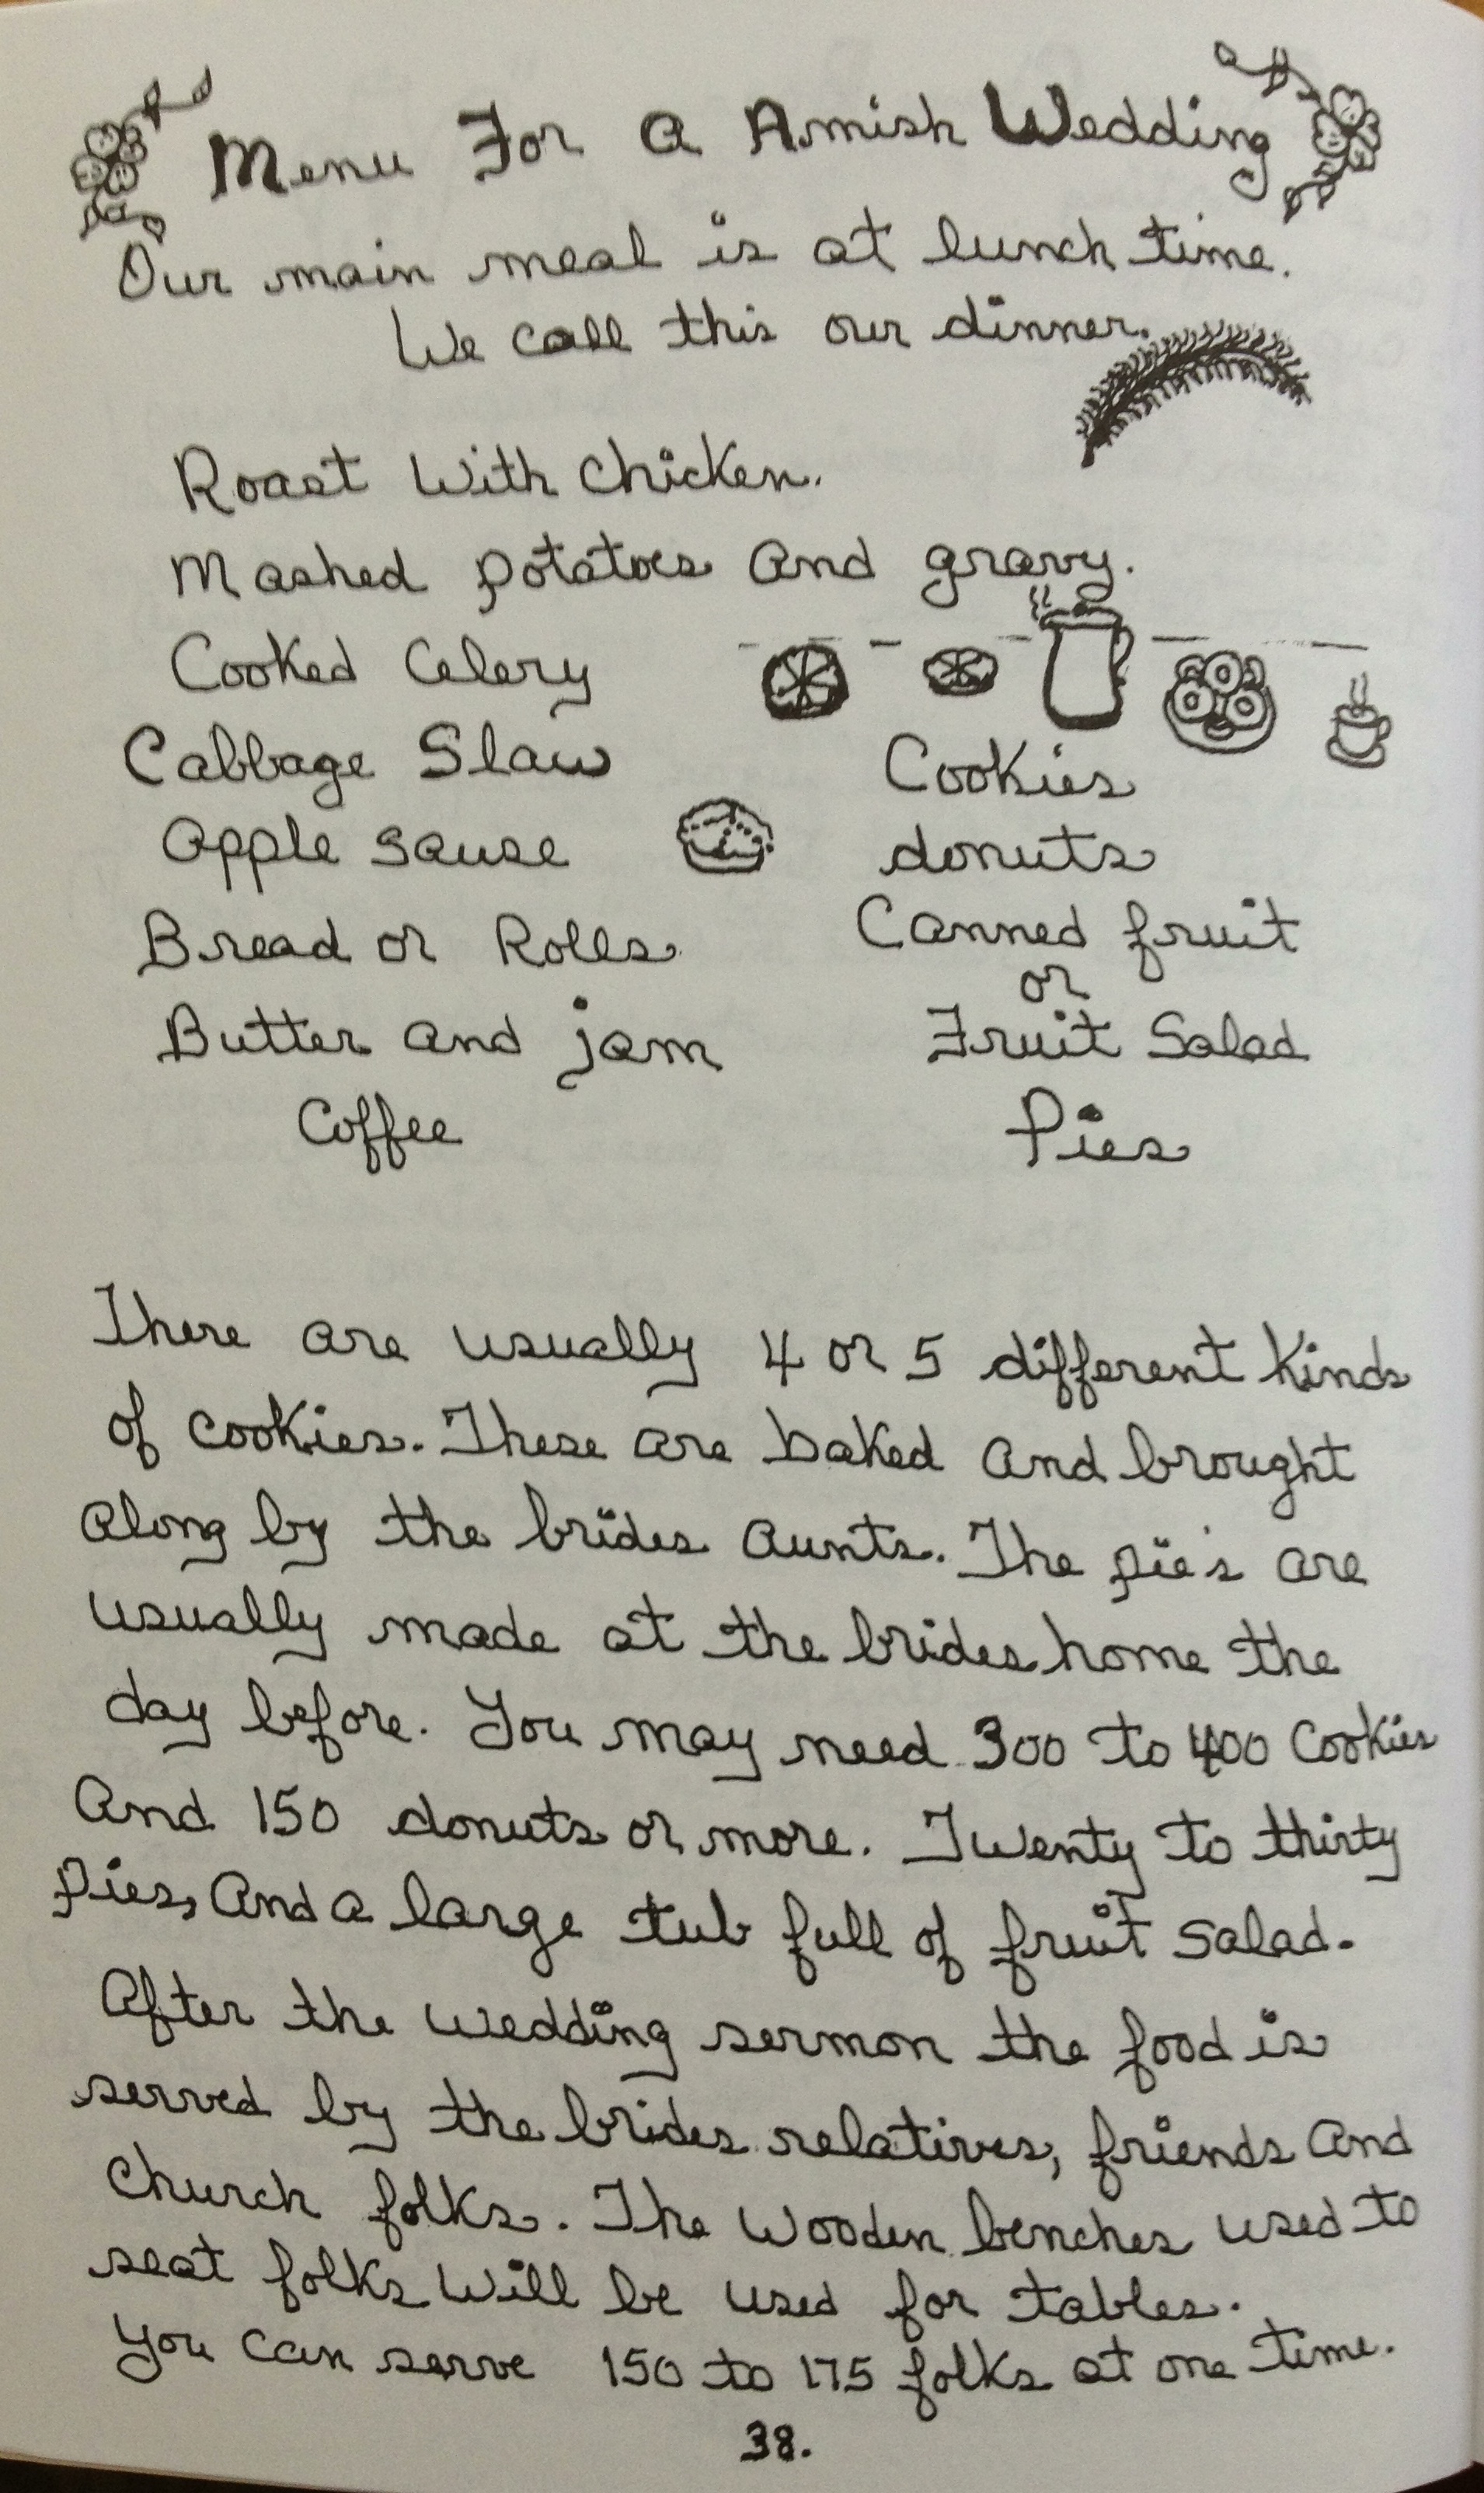 Menu For a Amish Wedding
Our main meal is at lunch time.
We call this our dinner.
Roast With Chicken.
Mashed potatoes and gravy.
Cooked Celery
Cabbage Slaw
Apple sause
Bread or Rolls
Butter and jam
Coffee
Cookies
donuts
Canned fruit
or
Fruit Salad
Pies
There are usually 4 or 5 different Kinds
of cookies. These are baked and brought
along by the brides aunts. The pie's are
usually made at the brides home the
day before. You may need 300 to 400 Cookies
And 150 donuts or more. Twenty to thirty
Pies, And a large tub full of fruit salad.
After the wedding sermon the food is
served by the brides relatives, friends and
Church folks. The Wooden benches used to
seat folks Will be used for tables.
You can serve 150 to 175 folks at one time.
38.